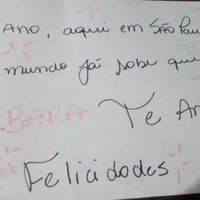 Ano, aqui em São Pau
mundo já sabe qu
BARA Te A
Felicidades